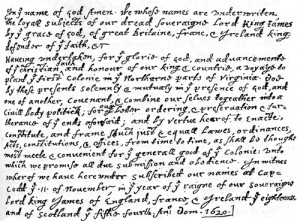 In yᵉ name of god Amen. We whose names are underwriten,
the loyall subjects of our dread soveraigne Lord King James
by yᵉ grace of god, of great Britaine, franc, & Ireland king,
defendor of yᵉ faith, &c
Haveing undertaken, for yᵉ glorie of god, and advancemente
of yᵉ christian and honour of our king & countrie, a voyage to
plant yᵉ first colonie in yᵉ Northerne parts of Virginia. Doe
by these presents solemnly & mutualy in yᵉ presence of god, and
one of another, covenant, & combine our selves togeather into a
civill body politick, for our better ordering, & preservation & fur=
therance of yᵉ ends aforesaid; and by vertue hearof to enacte,
constitute, and frame such just & equall Lawes, ordinances,
Acts, constitutions, & offices, from time to time, as shall be thought
most meete & convenient for yᵉ generall good of yᵉ colonie: unto
which we promise all due submission and obedience. In witnes
wherof we have hereunder subscribed our names at Cap=
Codd yᵉ ·11· of November, in yᵉ year of yᵉ raigne of our soveraigne
Lord king James of England, franc, & Ireland yᵉ eighteenth,
and of Scotland yᵉ fiftie fourth. An͞o: Dom. 1620.